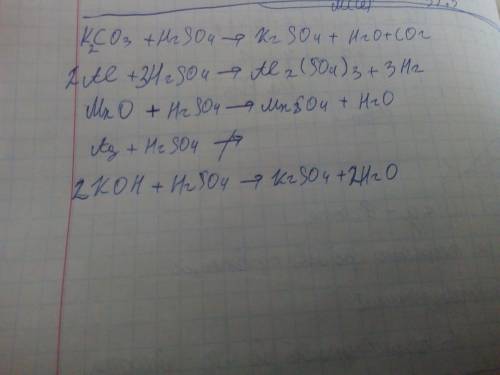 K2CO3 + H2SO4 → K2SO4 + H2O + CO2
2Al + 3H2SO4 → Al2(SO4)3 + 3H2
MnO + H2SO4 → MnSO4 + H2O
Ag + H2SO4 ↛
2KOH + H2SO4 → K2SO4 + 2H2O